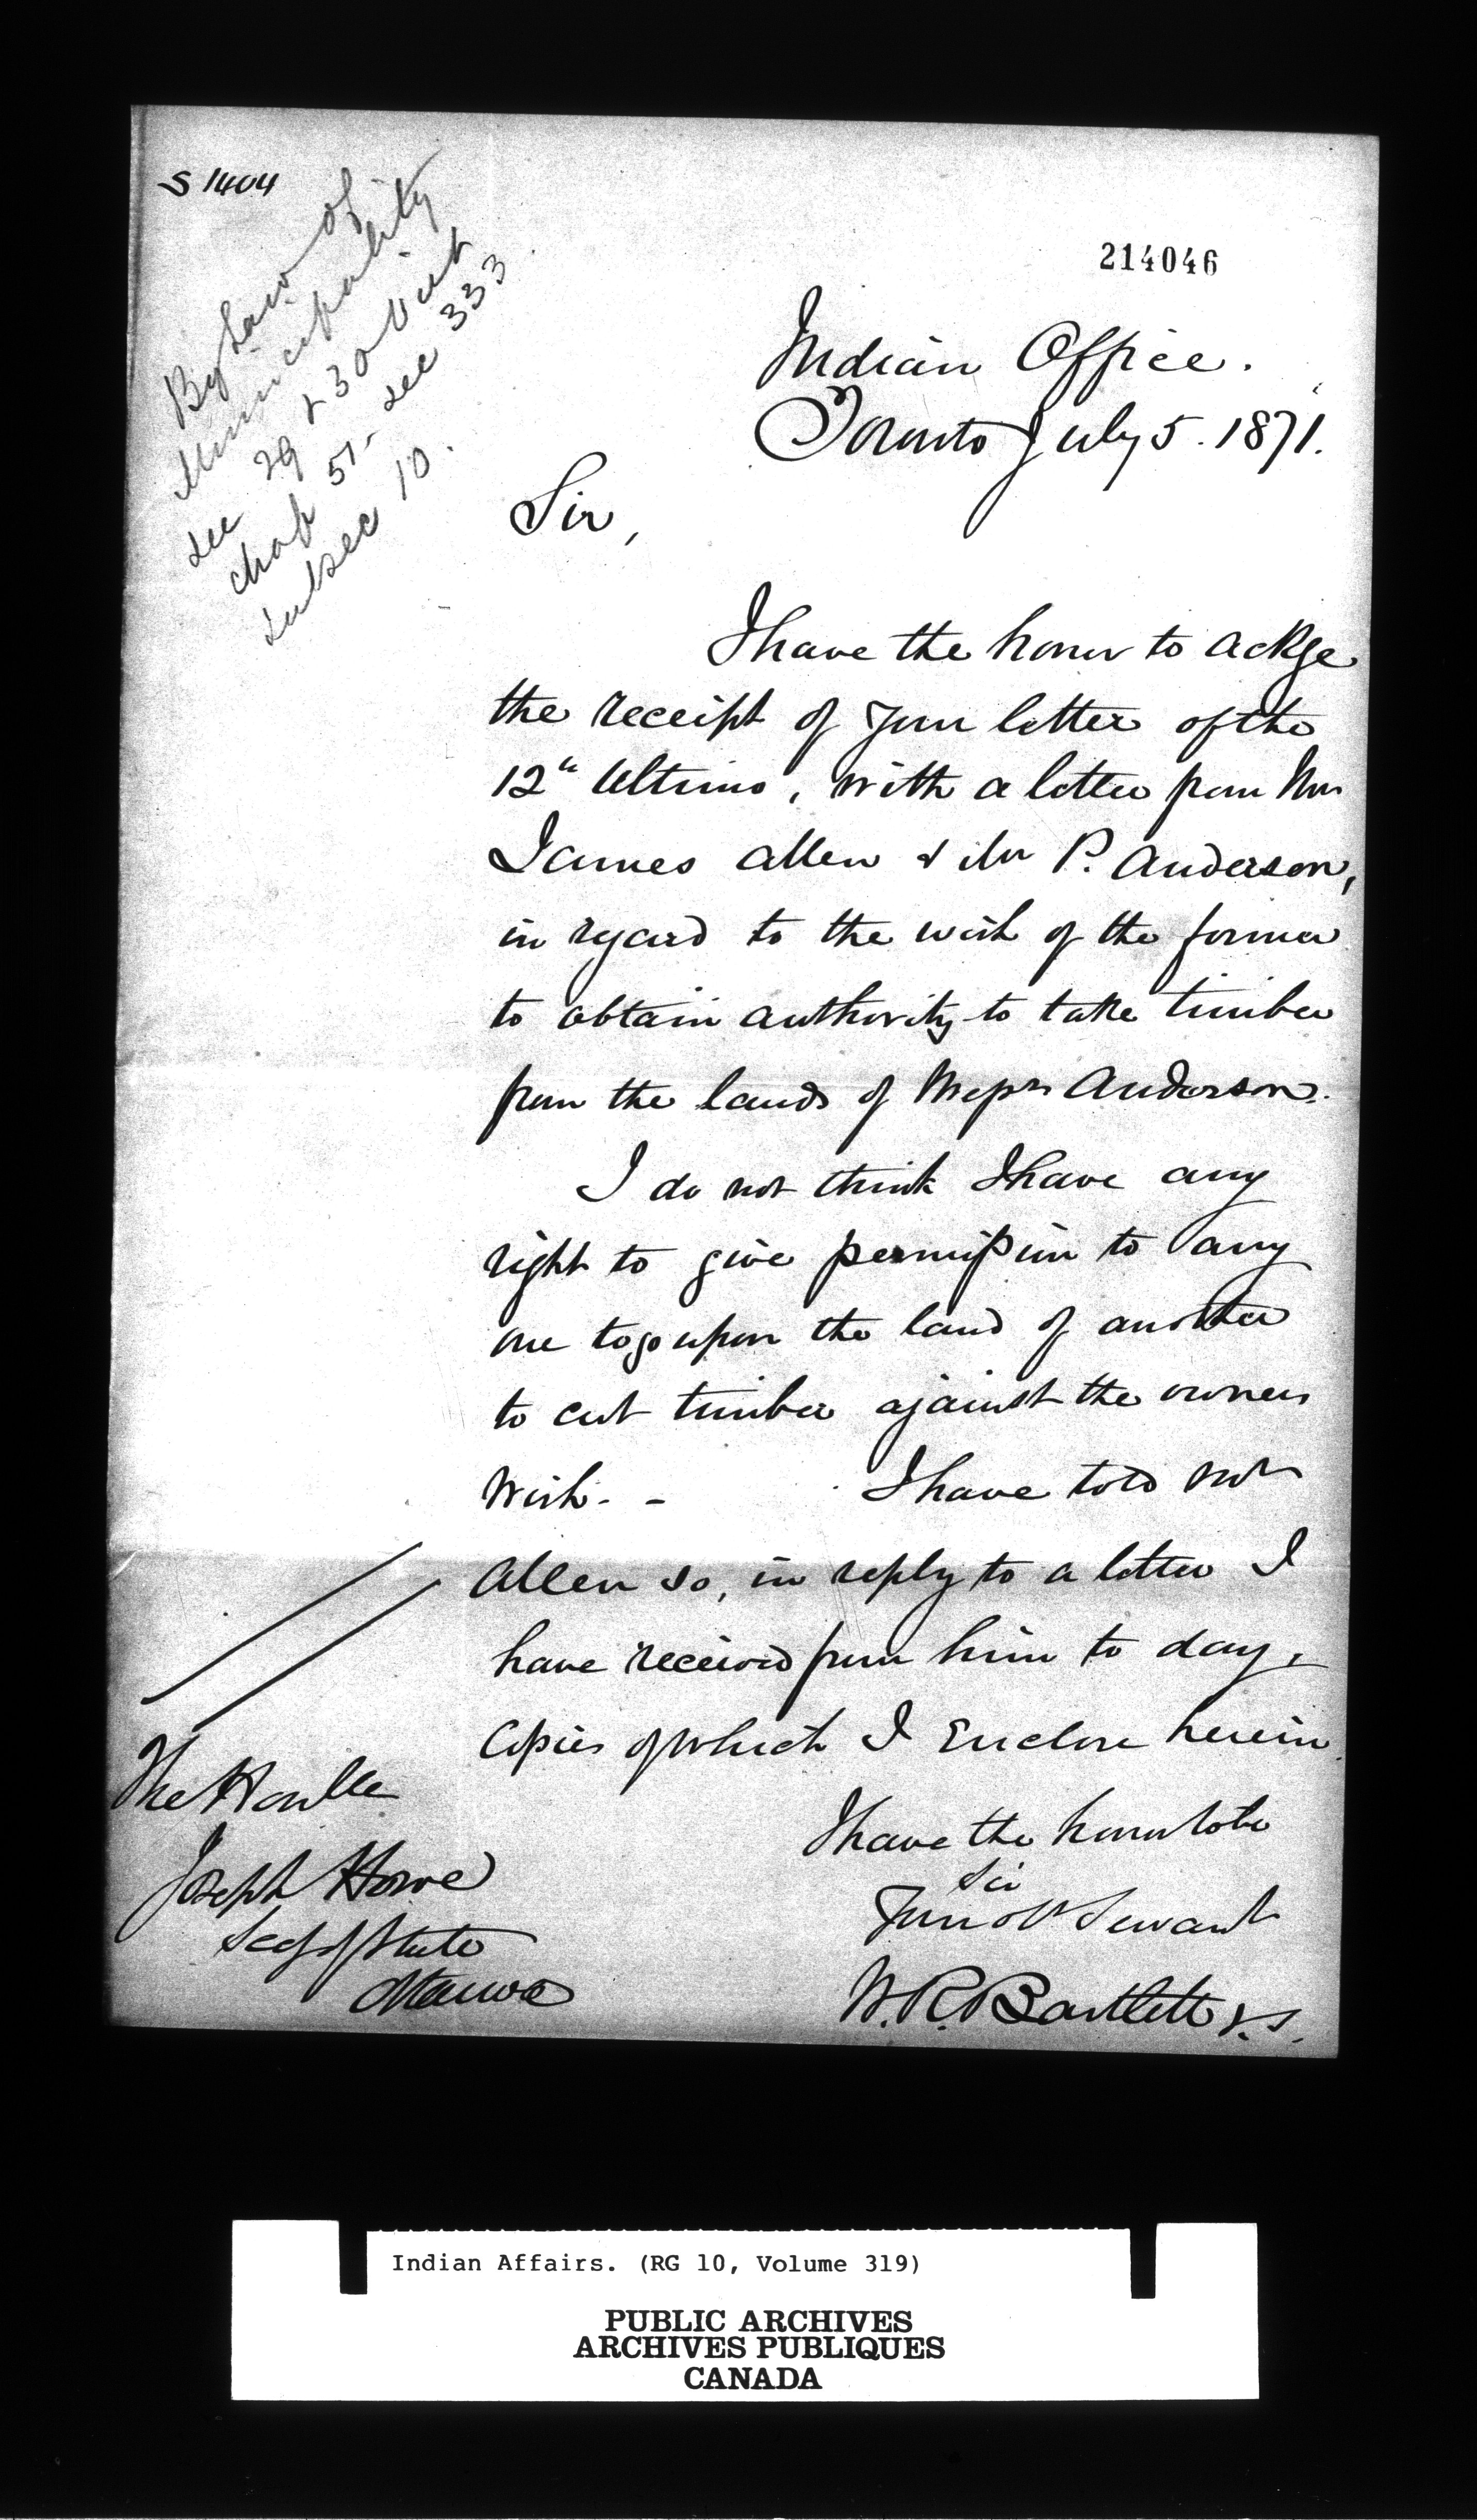 S 1404
By Law of
Municipality
see 29 & 30 Vict
chap 51 - sec 333
subsec 10.
214046
Indian Office.
Toronto July 5. 1871.
Sir,
I have the honor to ackge
the receipt of your letter of the
12th Ultimo, with a letter from Mr
James Allen & Mr P. Anderson,
in regard to the wish of the former
to obtain authority to take timber
from the lands of Messrs Anderson.
I do not think I have any
right to give permission to any
one to go upon the land of another
to cut timber against the owners
wish. - I have told Mr
Allen so, in reply to a letter I
have received from him to day,
Copies of which I Enclose herein
I have the honor to be
Sir
Your obt Servant
W. R. Bartlett
The Honble
Joseph Howe
Secy of State
Ottawa
Indian Affairs. (RG 10, Volume 319)
PUBLIC ARCHIVES
ARCHIVES PUBLIQUES
CANADA